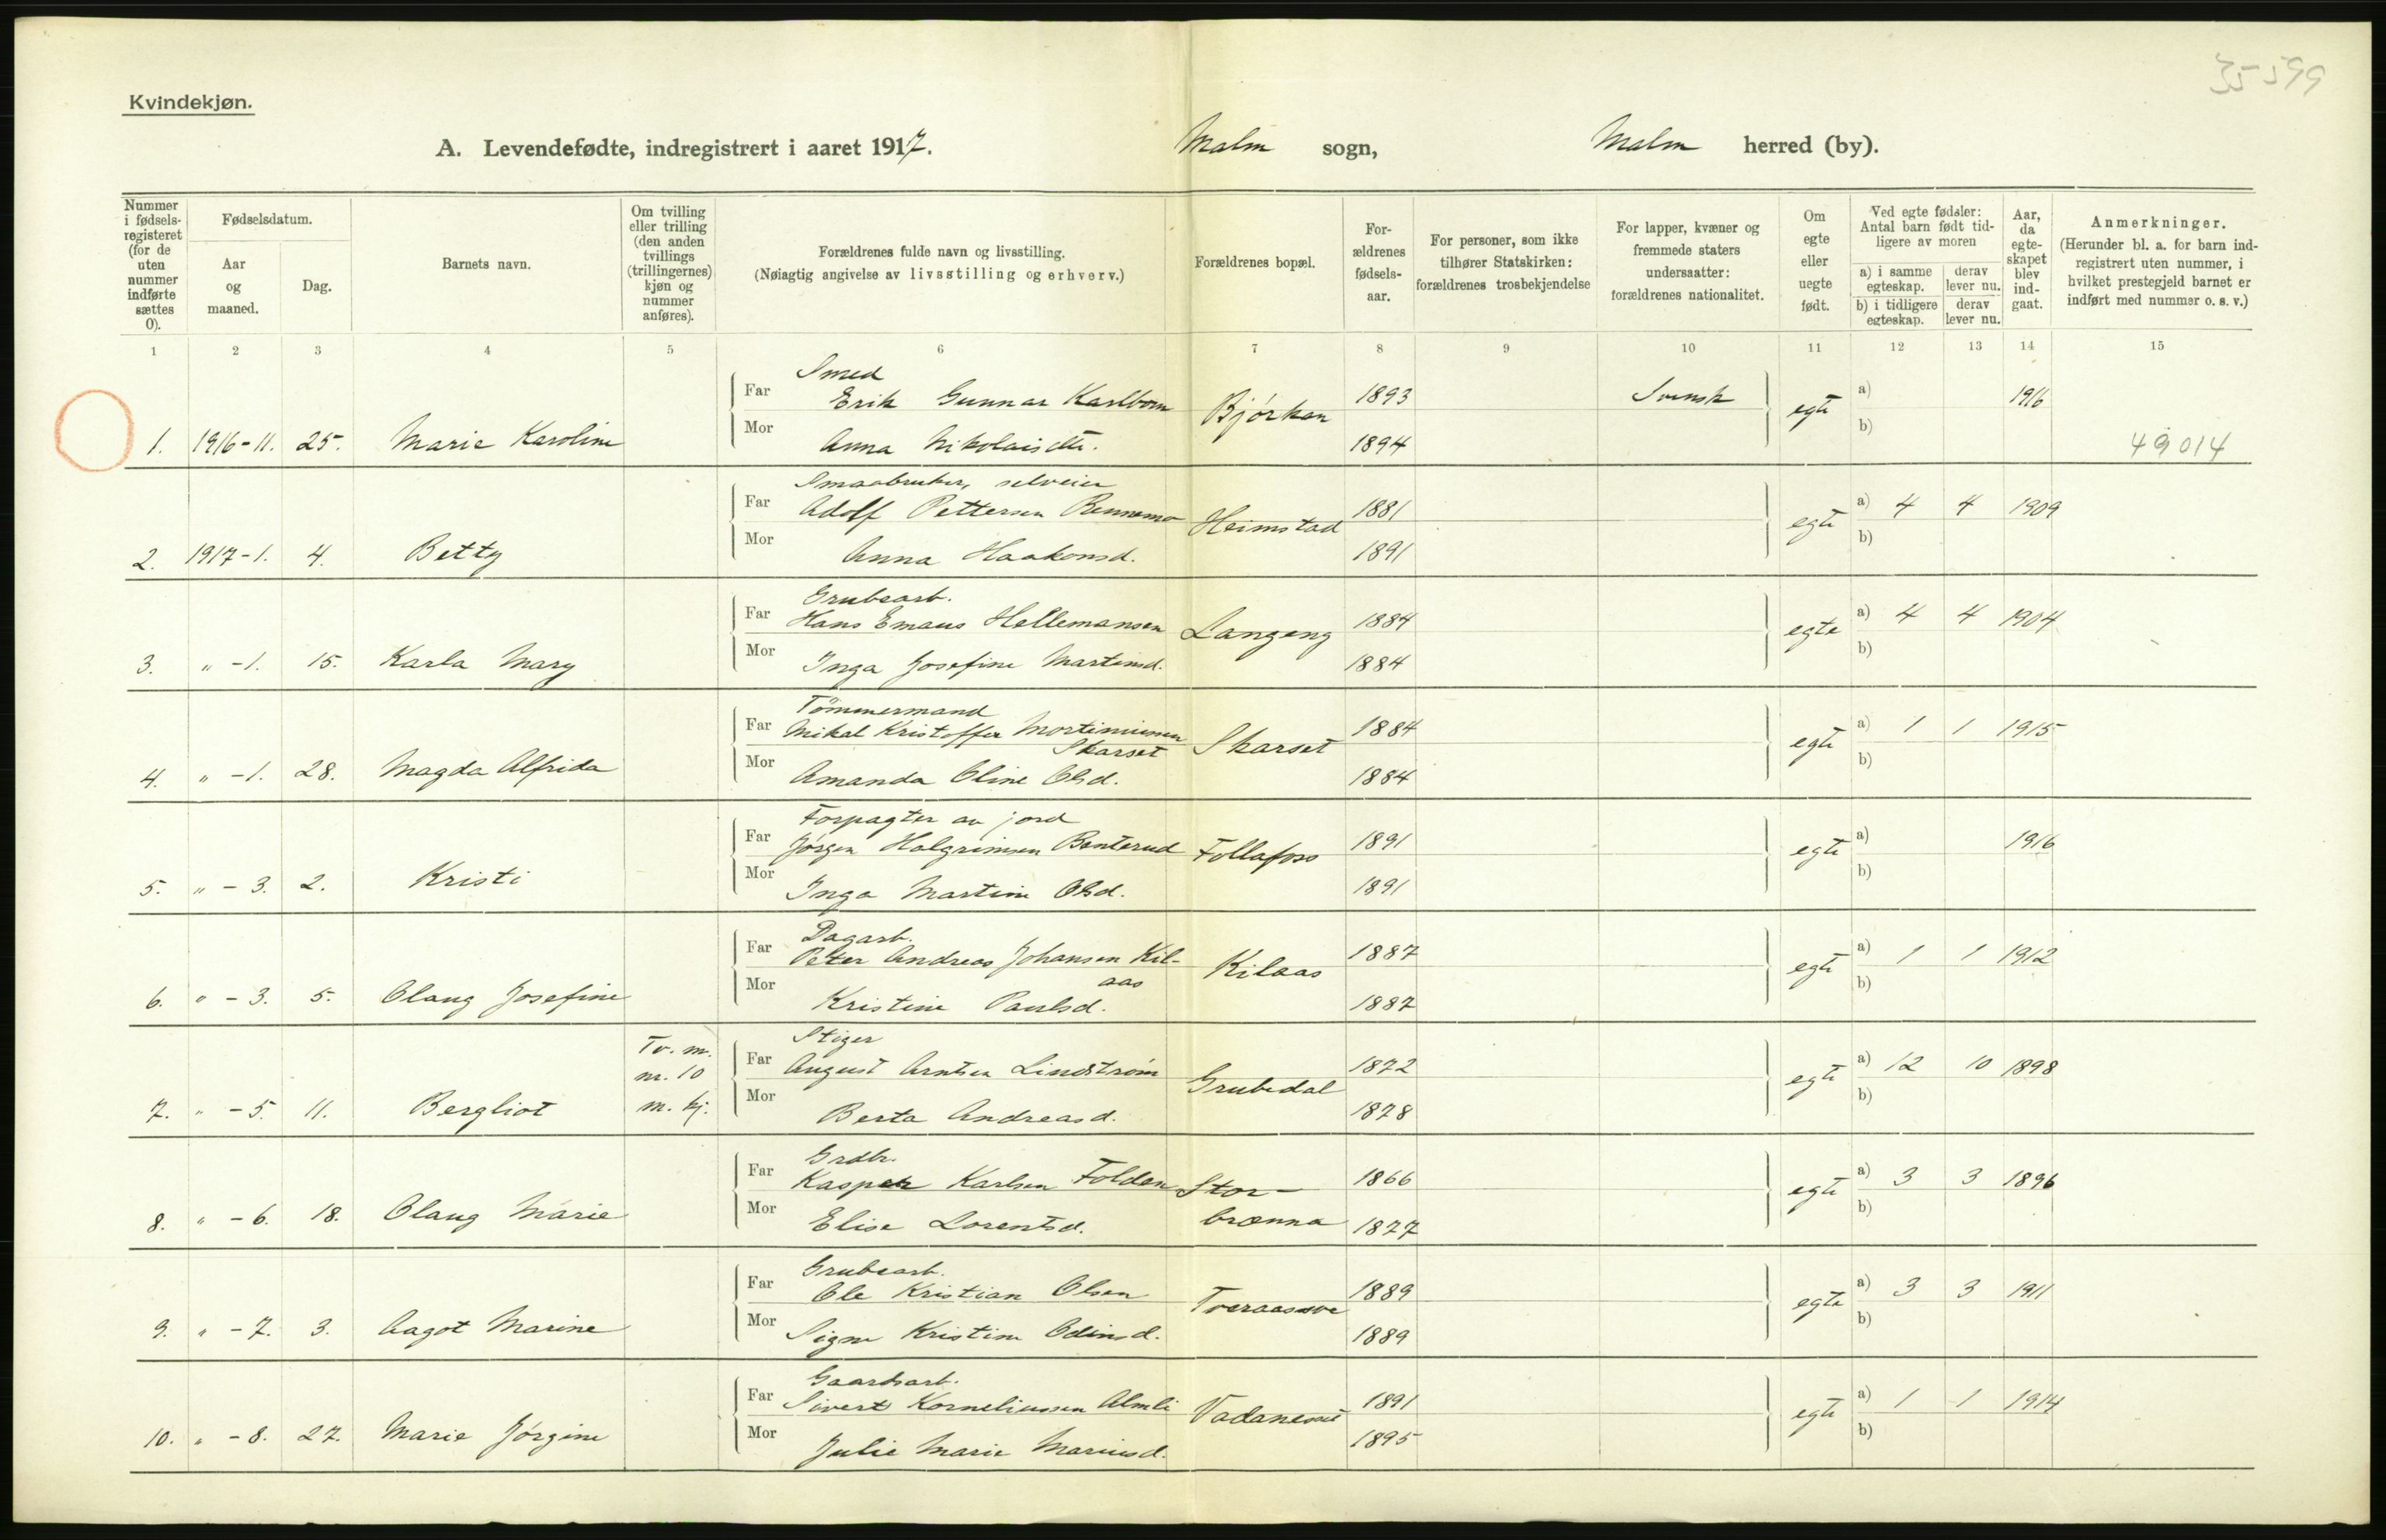 35-599
Kvindekjøn.
A. Levendefødte, indregistrert i aaret 1917. Malm sogn, Malm herred (by).
Nummer i fødselsregisteret (for de uten nummer indførte sættes 0).
Fødselsdatum.
Aar og maaned.
Dag.
Barnets navn.
Om tvilling eller trilling (den anden tvillings (trillingernes) kjøn og nummer anføres).
Forældrenes fulde navn og livsstilling.
(Nøiagtig angivelse av livsstilling og erhverv.)
Forældrenes bopæl.
Forældrenes fødselsaar.
For personer, som ikke tilhører Statskirken: forældrenes trosbekjendelse
For lapper, kvæner og fremmede staters undersaatter: forældrenes nationalitet.
Om egte eller uegte født.
Ved egte fødsler: Antal barn født tidligere av moren
a) i samme egteskap. derav lever nu.
b) i tidligere egteskap. derav lever nu.
Aar, da egteskapet blev indgaat.
Anmerkninger.
(Herunder bl. a. for barn indregistrert uten nummer, i hvilket prestegjeld barnet er indført med nummer o. s. v.)
1 2 3 4 5 6 7 8 9 10 11 12 13 14 15
Smed
Far Erik Gunnar Karlbom Bjørkan 1893 Svensk egte a) 1916
1. 1916-11. 25. Marie Karoline Mor Anna Nikolaisdtr. 1894 b) 49014
Smaabruker, selveier
Far Adolf Pettersen Rennemo Heimstad 1881 egte a) 4 4 1909
2. 1917-1. 4. Betty Mor Anna Haakonsd. 1891 b)
Grubearb.
Far Hans Emaus Hellemansen Langeng 1884 egte a) 4 4 1904
3. " -1. 15. Karla Mary Mor Inga Josefine Martinsd. 1884 b)
Tömmermand
Far Mikal Kristoffer Mortiniusen Skarset Skarset 1884 egte a) 1 1 1915
4. " -1. 28. Magda Alfrida Mor Amanda Oline Olsd. 1884 b)
Forpagter av jord
Far Jørgen Halgrimsen Benterud Follafoss 1891 egte a) 1916
5. " - 3. 2. Kristi Mor Inga Martine Olsd. 1891 b)
Dagarb.
Far Peter Andreas Johansen Kilaas Kilaas 1887 egte a) 1 1 1912
6. " - 3. 5. Olaug Josefine Mor Kristine Paulsd. 1887 b)
Stiger
Tv. m. nr. 10 m. kj. Far August Arntsen Lindstrøm Grubedal 1872 egte a) 12 10 1898
7. " - 5. 11. Bergliot Mor Berta Andreasd. 1878 b)
Grdbr.
Far Kasper Karlsen Folden Storbrænna 1866 egte a) 3 3 1896
8. " - 6. 18. Olaug Marie Mor Elise Lorentsd. 1877 b)
Grubearb.
Far Ole Kristian Olsen 1889 egte a) 3 3 1911
9. " - 7. 3. Aagot Marine Mor Signe Kristine Odinsd. 1889 b)
Gaardsarb.
Far Sivert Korneliussen Almli 1891 egte a) 1 1 1914
10. " - 8. 27. Marie Jørgine Mor Julie Marie Mariusd. 1895 b)